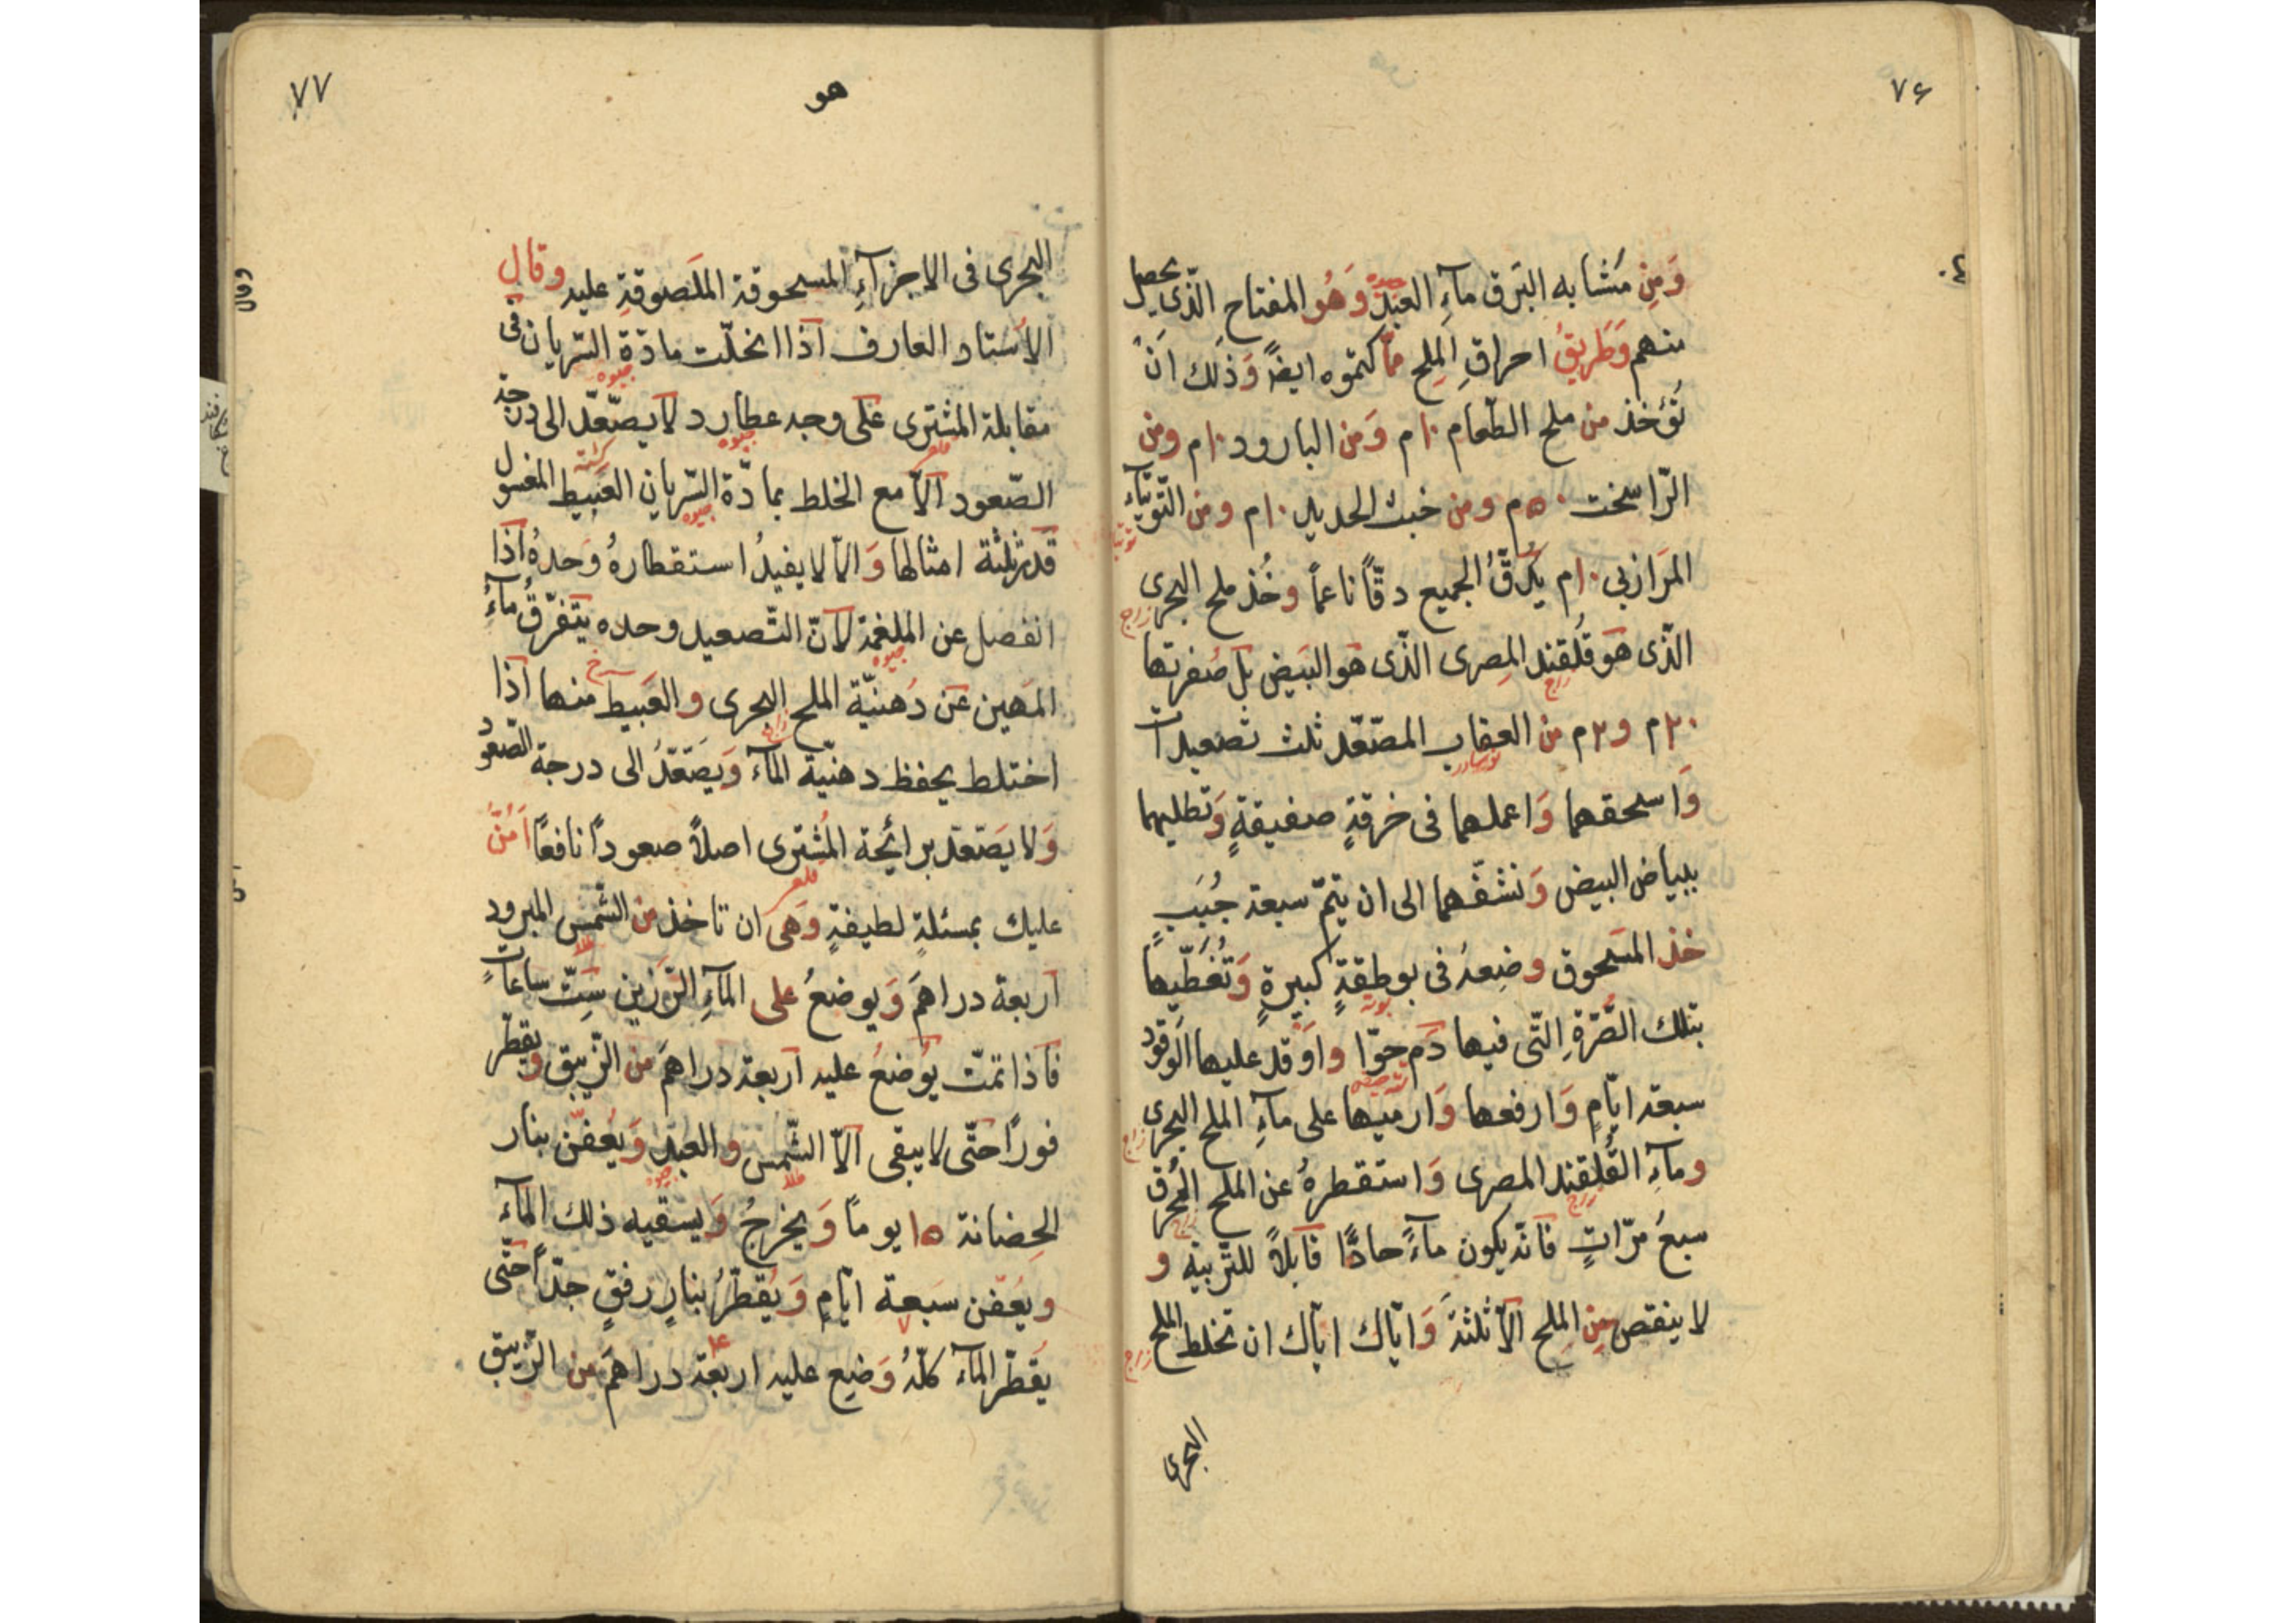 ٧۶
وَمِن مَشابه البَرق مآءِ العَبْدِ وَهُو المفتاح الّذى يحصل
منهم وَطَريقُ احراقِ المِلح ممّا كتموه ايضًا وَذٰلك انْ
تُؤخذ من ملح الطّعام ١٠م وَمن البارود ١٠م ومن
الرّاسخت ٥٠م ومن خبث الحديد ١٠م ومن التّوتيآء
المَرازبى ١٠م يُدَقُّ الجميع دقّاً ناعماً وخُذ ملح البحرى
الّذى هو قُلقند المِصرى الّذى هو البَيض بل صَفرتها
٢٠م و٢م من العقاب المصّعّد ثلث تصعيدات
وَاسحقهما وَاعملهما فى خرقةٍ صفيقةٍ وَتطليهما
ببياض البيض وَنشفّهما الى ان يتمّ سبعة جُبَبٍ
خذ المسَحوق وضِعهُ فى بوطقةٍ كبيرةٍ وَتُغَطّيها
بتلك الصُّرَّةِ الّتى فيها دَم حوّا واَوْقد عليها الَوقود
سبعة ايّامٍ وَارفعها وَارميها على مآءِ الملح البحرى
ومآءِ القُلقند المصرى وَاستقطرهُ عن الملح المُحرق
سبعَ مرّاتٍ فانّه يكون مآءً حادًّا قابلاً للتّربية و
لا ينقص مِن المِلح الّا ثلثهَ وَايّاك ايّاك ان تخلط الملح
البحرى
٧٧
هو
البحرى فى الاجزآءِ المسحوقة الملَصوقةِ عليه وقال
الاُستاد العارف اذا انحلّت مادّة السّريان فى
مقابلة المشترى عَلى وجه عطارد لا يصّعّد الى درجة
الصّعود الّا مع الخلط بمادّة السّريان العَبيط المغسول
قدر ثلثة امثالها وَالّا لا يفيدُ استقطارهُ وَحدهُ اذا
انفصل عن الملغمة لانّ التّصعيد وحده يتفرّقُ مآءُ
المَهين عَن دُهنيّة الملح البحرى والعَبيط منها اذا
اختلط يحفظ دهنيّة المآءَ وَيَصَّعَّدُ الى درجة الصّعود
وَلا يَصَّعَّد برائحة المُشترى اصلاً صعودًا نافعًا اَمُنُّ
عليك بمسئلةٍ لطيفةٍ وَهى ان تاخذ من الشّمس المبرود
اربعة دراهمَ وَيوضعُ على المآءِ الرَّزين سَتّ ساعاتٍ
فاذا تمّت يوُضَعُ عليه اربعة دراهمَ من الزّيبق ويقطّر
فورًا حتّى لا يبقى الّا الشّمس والعبد وَيُعفّن بنار
الحِضانة ١٥ يوماً وَيخرجُ وَيسقيه ذلك المآءَ
ويعُفّن سَبعة ايّامٍ وَيُقطّرُ بنارٍ رفقٍ جدّاً حتّى
يَقطرّ المآءَ كلّهُ وَضيع عليه اربعة دراهمَ من الزّيبق